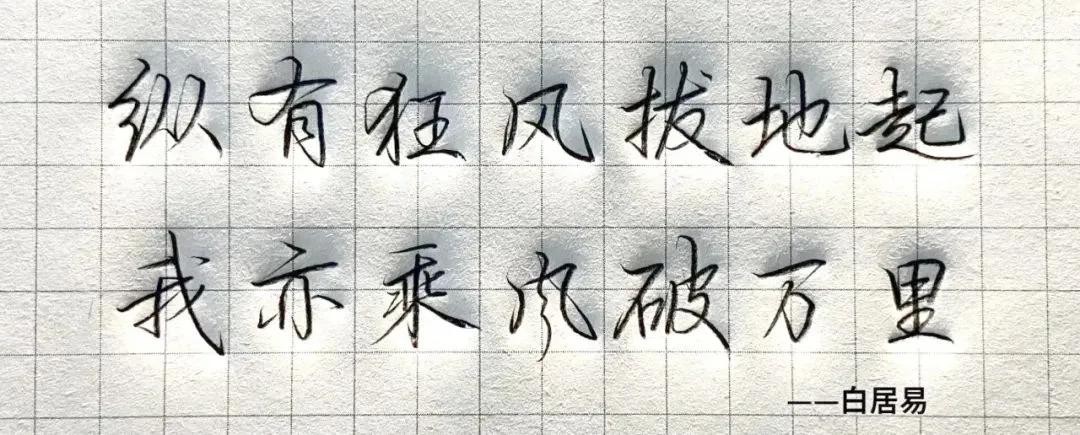 纵有狂风拔地起
我亦乘风破万里
——白居易